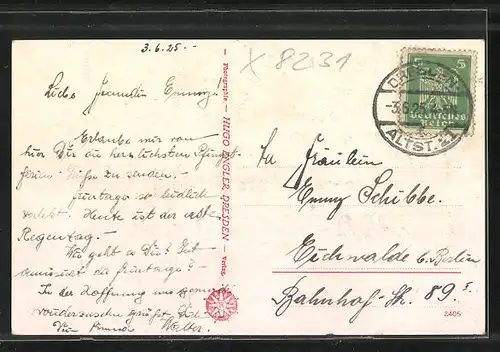 3.6.25.
X 8231
Liebe Freundin Emmy!
Erlaube mir von
hier Dir die herzlichsten Pfingst
ferien-Grüße zu senden.
so
Heute ist der erste
Regentag.
Wie geht es Dir? Gut
amüsiert die Feiertage?
In der Hoffnung uns
wiederzusehen grüßt Dich
Dein Walter.
Photographie - HUGO ENGLER, DRESDEN - Verlag.
DRESDEN
-3.6.25
ALTST. 24
5 5
Deutsches
Reich
Fräulein
Emmy Schibbe
Eichwalde b. Berlin
Bahnhof-Str. 89 I.
8405